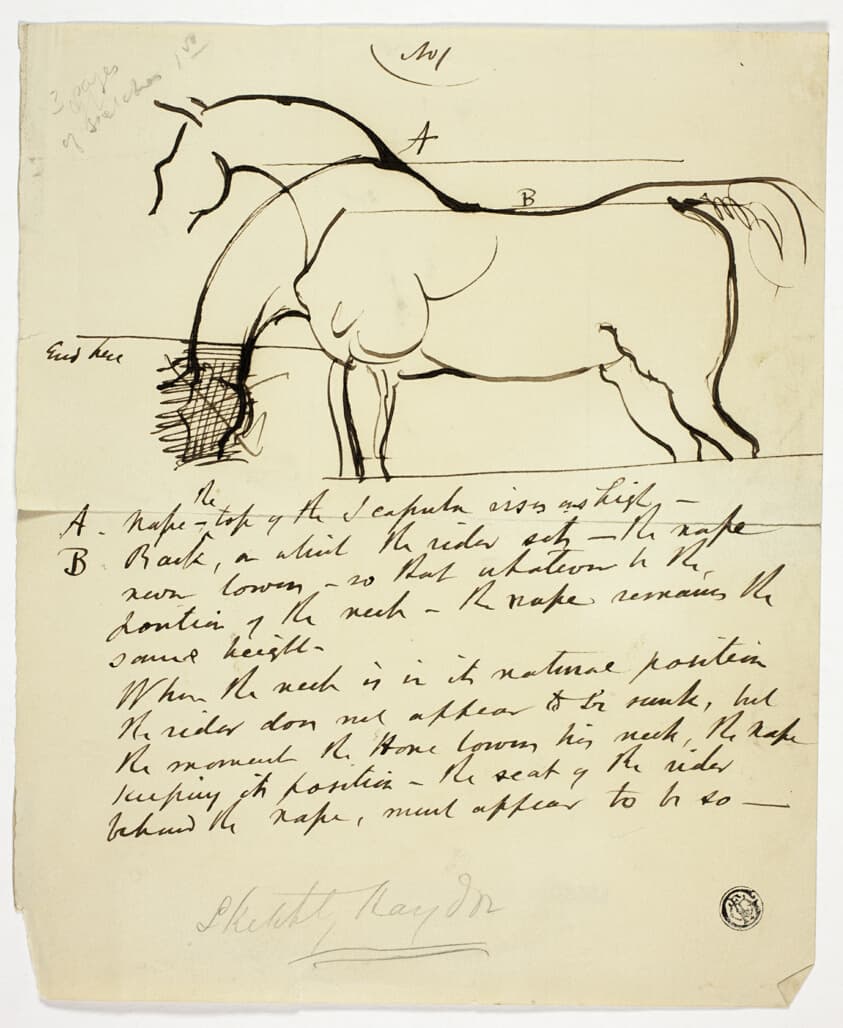 No 1
3 pages
of sketches 1.50
A
B
End here
the
A. Nape - top of the Scapula rises as high -
B. Back, on which the rider sits - the nape
never lowers - so that whatever be the
position of the neck - the nape remains the
same height -
When the neck is in its natural position
the rider does not appear to be sunk, but
the moment the Horse lowers his neck, the nape
keeping its position - the seat of the rider
behind the nape, must appear to be so -
Sketch by Haydon